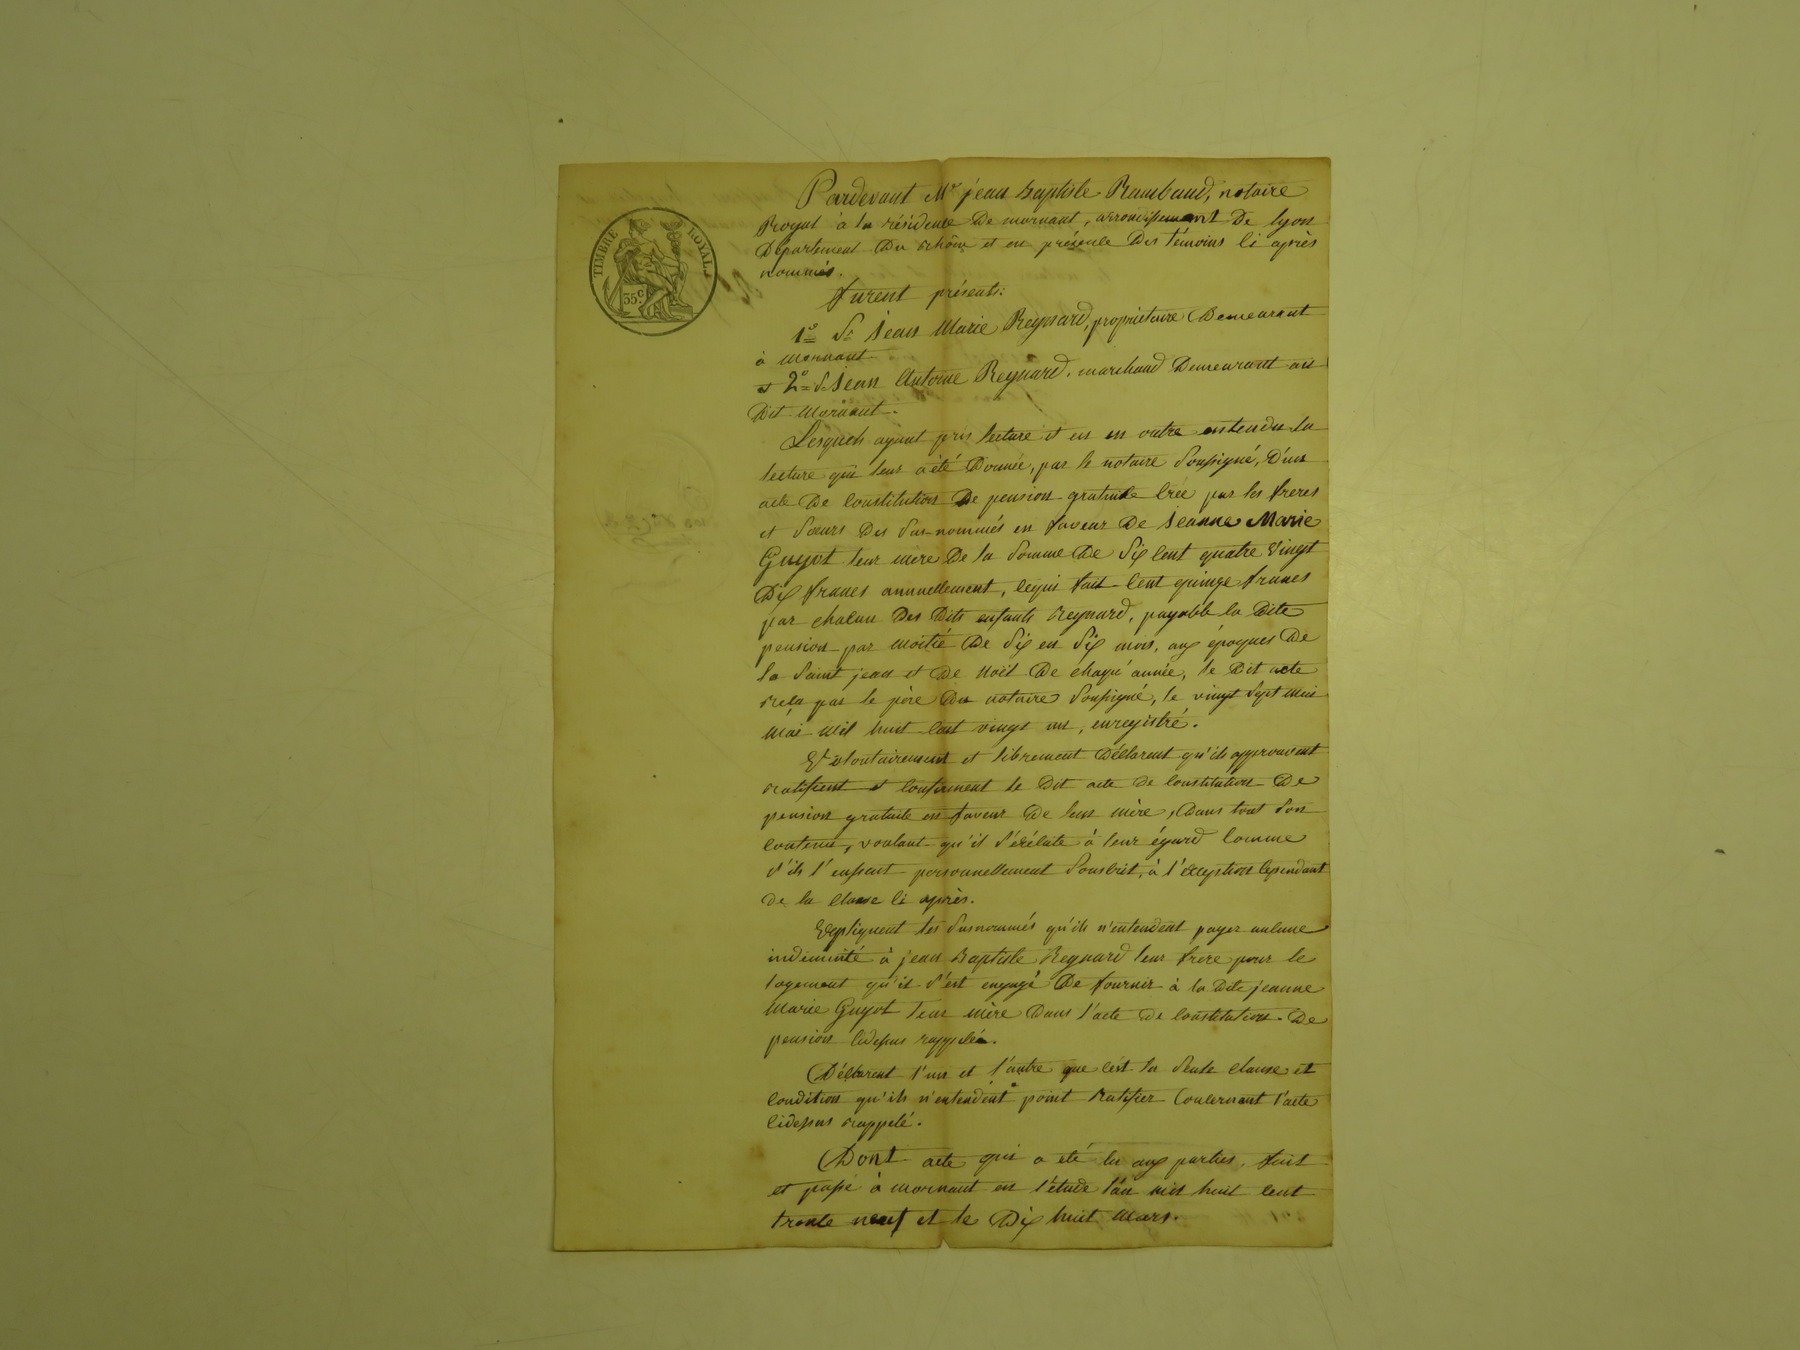 TIMBRE ROYAL
35c
Pardevant Me jean Baptiste Rambaud, notaire
Royal à la résidence De mornant, arrondissement De lyon
Département Du rhône et en présence Des témoins ci après
nommés.
furent présents:
1o Sr Jean Marie Reynard, propriétaire Demeurant
à mornant
et 2o Sr Jean Antoine Reynard, marchand Demeurant au
Dit Mornant.
Lesquels ayant pris lecture et eu en outre entendu la
lecture qui leur a été Donnée, par le notaire Soussigné, D'un
acte De Constitution De pension gratuite Créé par les freres
et Sœurs Des Sus-nommés en faveur De Jeanne Marie
Guyot leur mère De la Somme De Six Cent quatre Vingt
Dix francs annuellement, Cequi fait Cent quinze francs
par chacun Des Dits enfants Reynard, payable la Dite
pension par moitié De Six en Six mois, aux époques De
la Saint jean et De Noël De chaque année, le Dit acte
reçu par le père Du notaire Soussigné, le vingt Sept Mai
Mai Mil huit Cent vingt un, enregistré.
Volontairement et librement Déclarent qu'ils approuvent
ratifient et Confirment le Dit acte De Constitution De
pension gratuite en faveur De leur mère, Dans tout Son
Contenu, voulant qu'il S'éxécute à leur égard Comme
S'ils l'eussent personnellement Souscrit, à l'exception Cependant
De la Clause Ci après.
Expliquent les Susnommés qu'ils n'entendent payer aucune
indemnité à jean Baptiste Reynard leur frere pour le
logement qu'il S'est engagé De fournir à la Dite jeanne
Marie Guyot leur mère Dans l'acte De Constitution De
pension Cidessus rappelée.
Déclarent l'un et l'autre que C'est la Seule Clause et
Condition qu'ils n'entendent point Ratifier Concernant l'acte
Cidessus rappelé.
Dont acte qui a été lu aux parties, fait
et passé à mornant en l'étude l'an mil huit Cent
trente neuf et le Dix huit Mars.